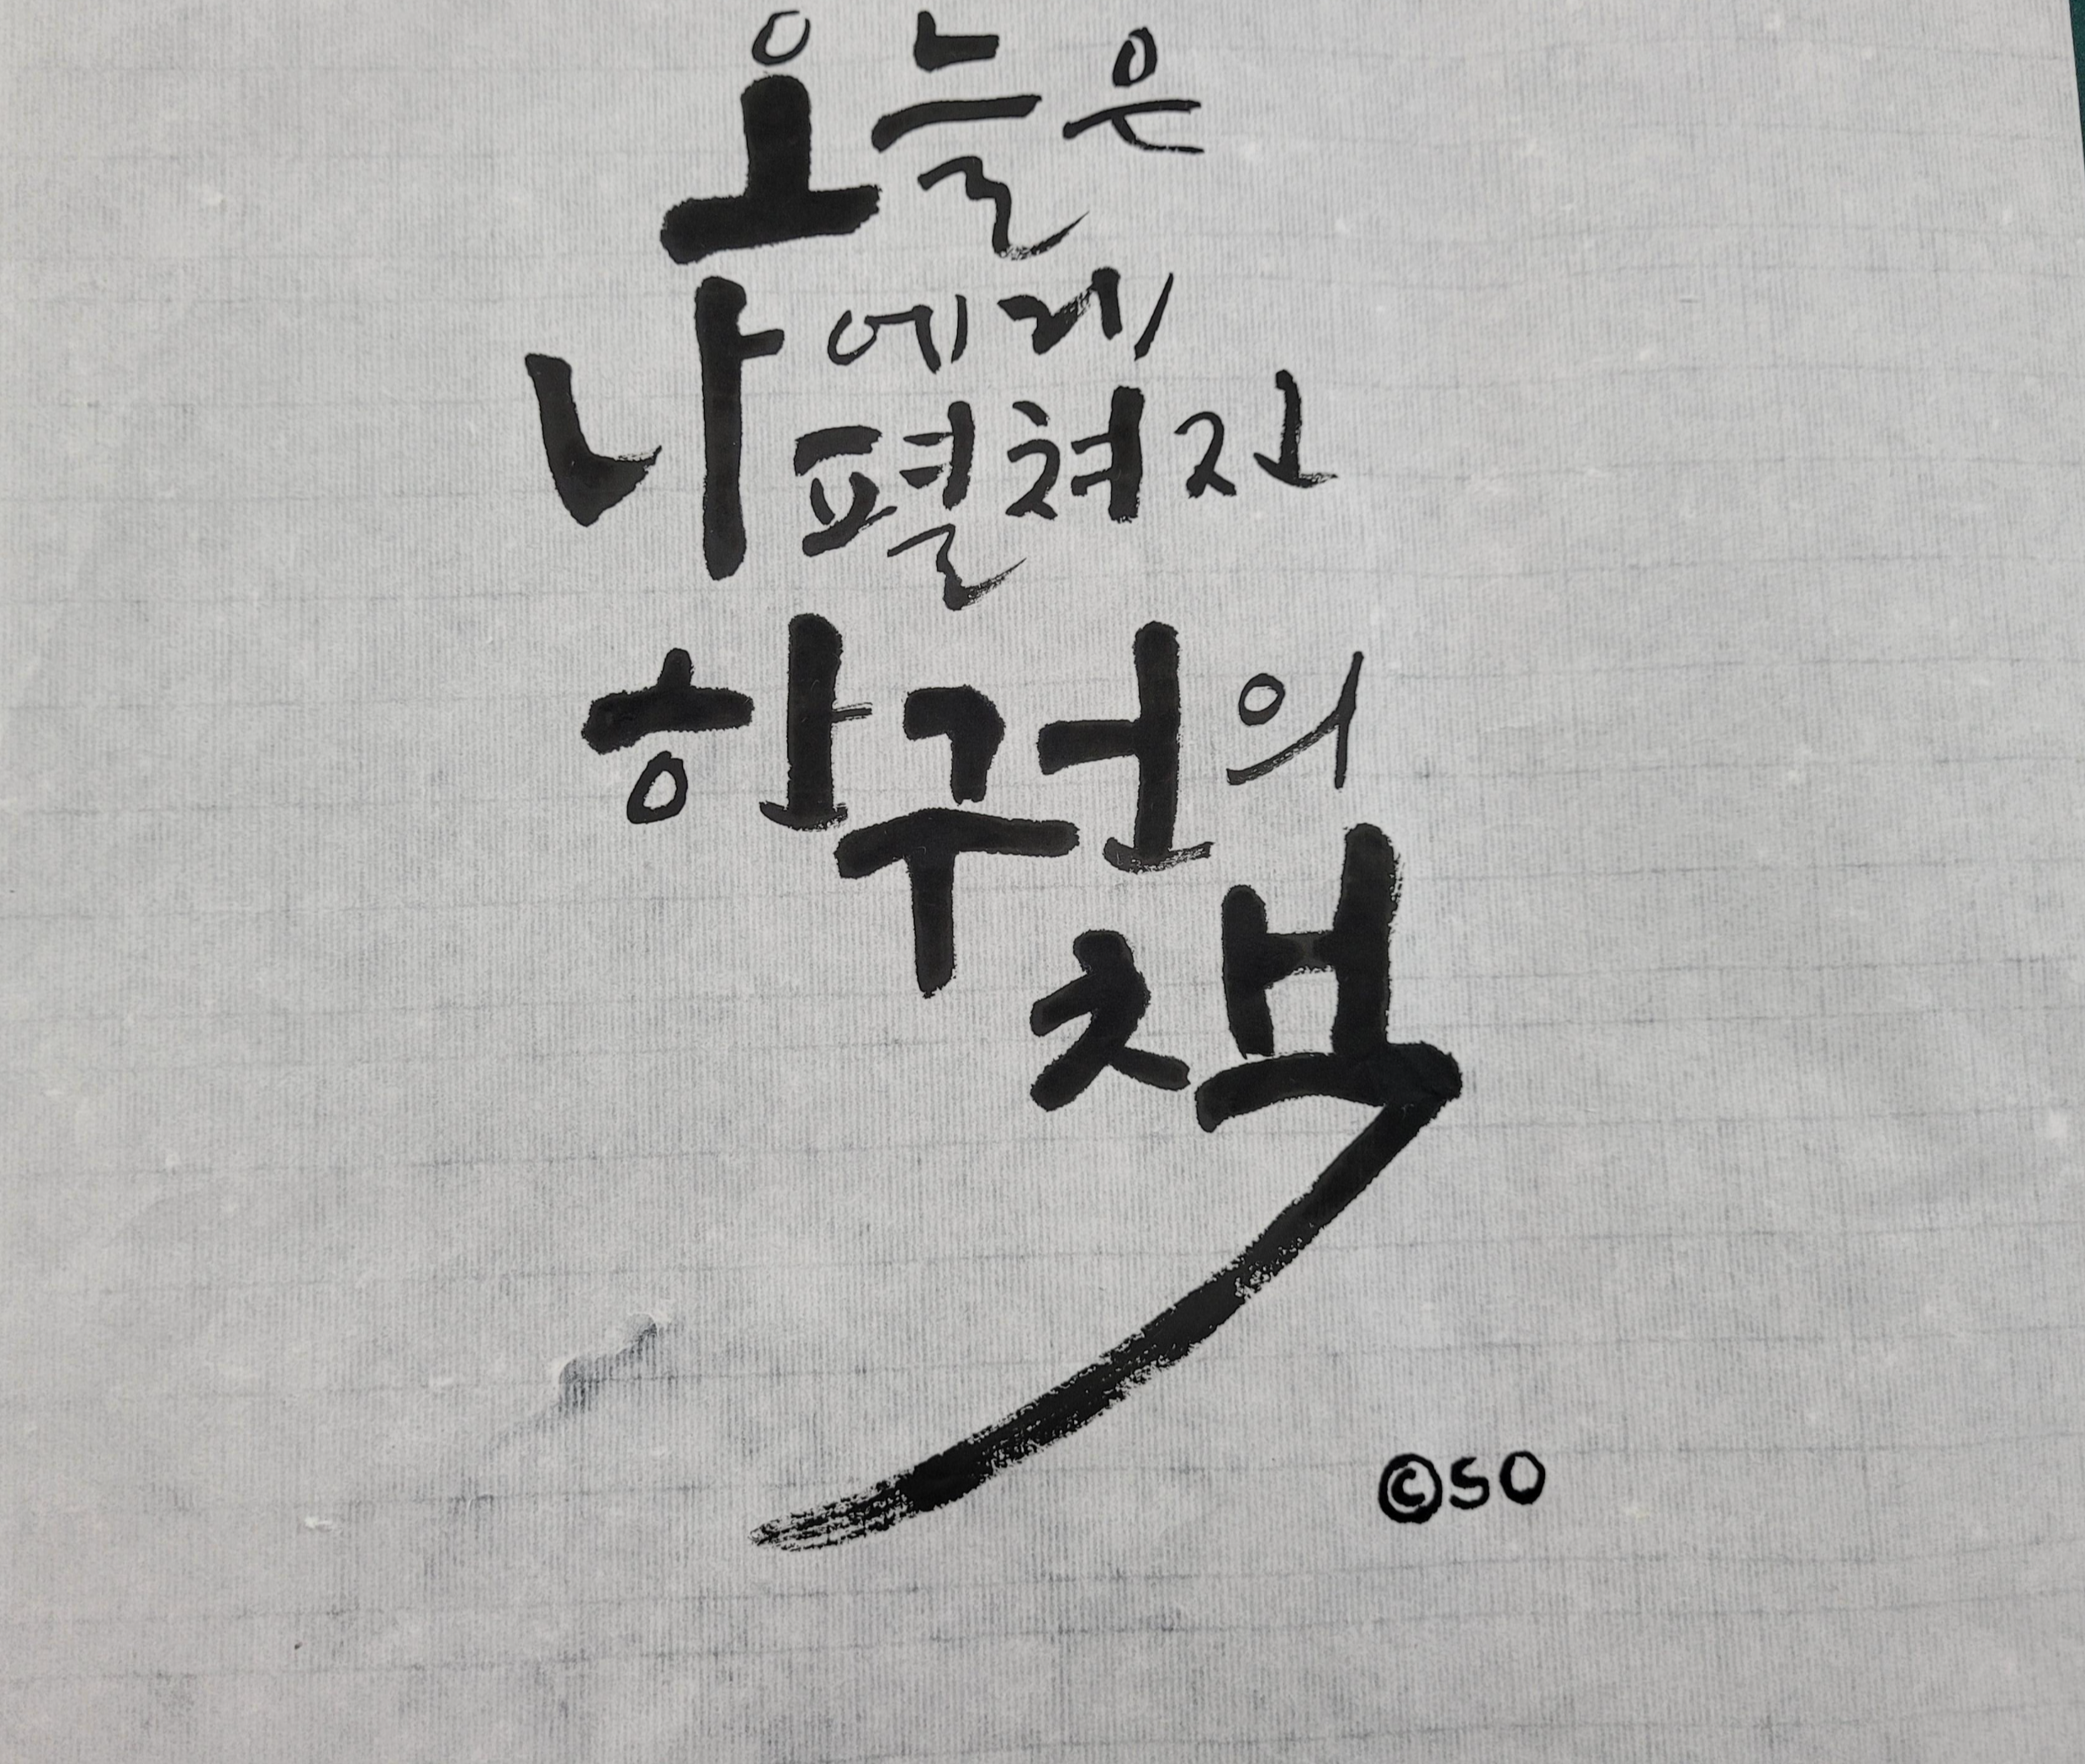 오늘은
나에게
펼쳐진
한 권의
책
©SO